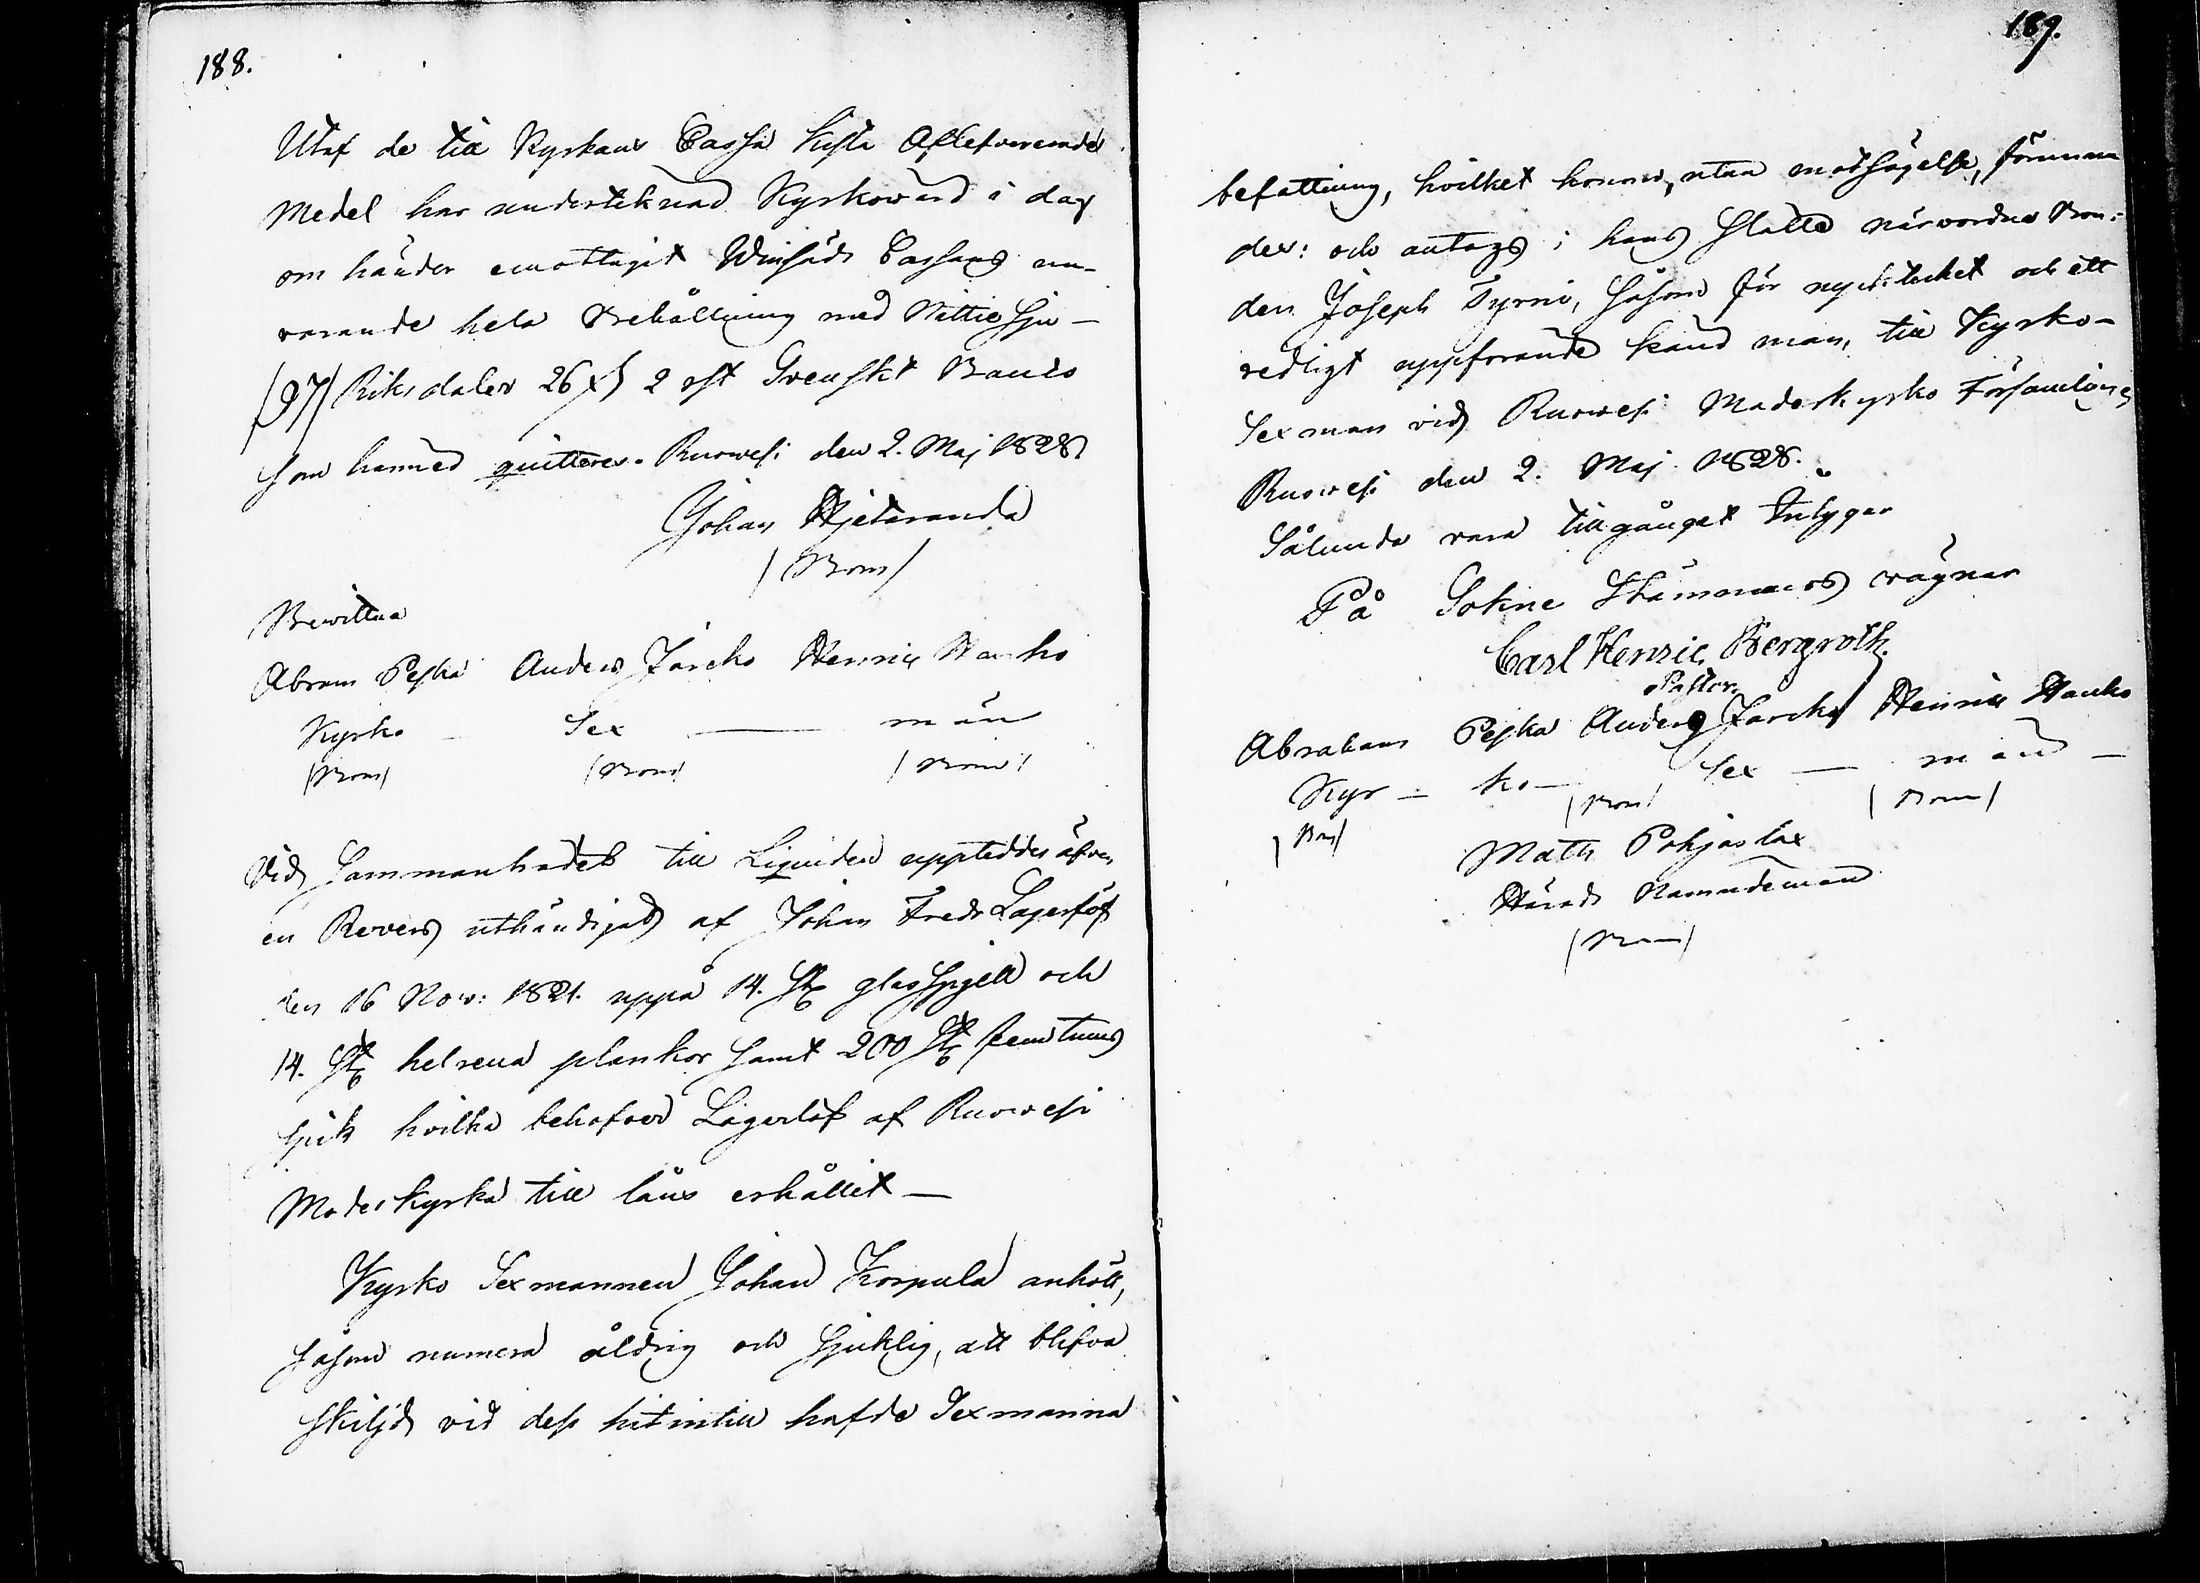 188.
Utaf de till Kyrkans Cassa kista Aflefvererade
Medel har underteknad Kyrkovärd i dag
om händer emottagit Winsäds Cassans nu-
varande hela Behållning med Nittie Sju-
/97/ Riksdaler 26 s 2 rst Svenskt Banco
som harmed quitteres. Ruovesi den 2. Maj 1828
Johan Hjetaranda
/Bom/
Bewittna
Abram Peska Anders Jarcko Henric Hanko
Kyrko - Sex - män
/Bom/ /Bom/ /Bom/
Vid Sammanträdet till Liquiden uppteddes äfven
en Revers uthändigad af Johan Fredr Lagerlöf
den 16 Nov: 1821. uppå 14. St glas Spjell och
14. St helrena plankor samt 200 St fem tums
spik hvilka behofver Lagerlöf af Ruovesi
Moderkyrka till låns erhållit -
Kyrko Sexmannen Johan Korpula anhöll,
såsom numera åldrig och sjuklig, att blifva
skiljd vid dess hitintill hafde Sexmanna
189.
befattning, hvilket honom, utan motsägelse, förunna
des: och antogs i hans ställe närvordne Bon-
den Joseph Tyrni, såsom för nyckterhet och ett
redligt uppförande känd man, till Kyrko-
Sexman vid Ruovesi Moderkyrko Församling
Ruovesi den 2. Maj 1828.
Sålunda vara tillgånget Intygar
På Sokne Stämmans vägnar
Carl Henric Bergroth.
Pastor.
Abraham Peska Anders Jarcko Henric Hanko
Kyr - ko - Sex - män -
/Bom/ /Bom/ /Bom/
Matts Pohjaslax
Härads Namndeman
/Bom/